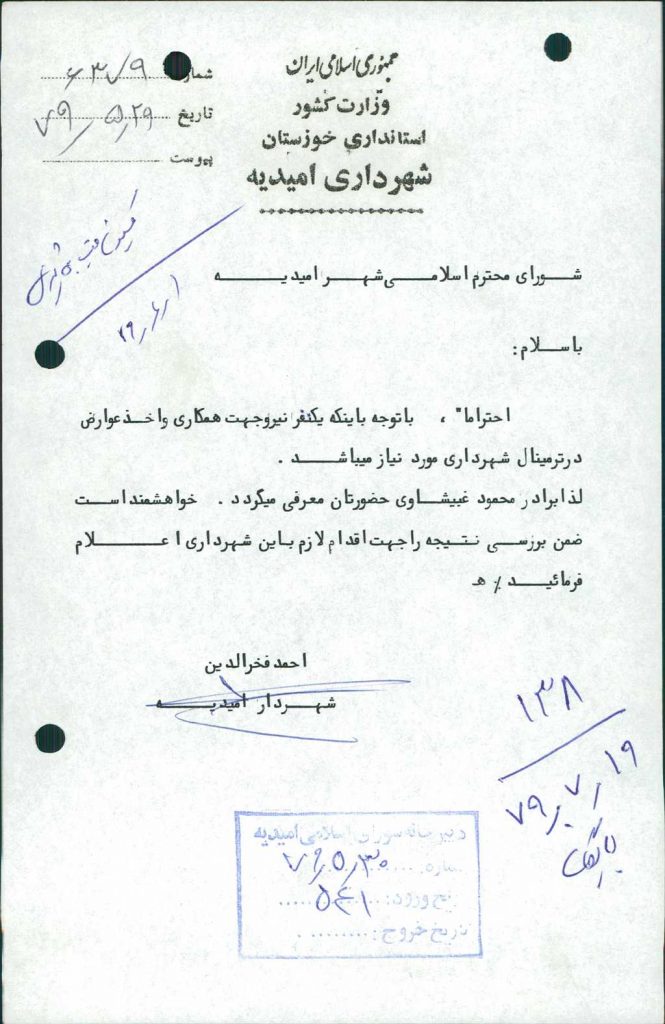 جمهوری اسلامی ایران
وزارت کشور
استانداری خوزستان
شهرداری امیدیه
شماره ۶۳۷۹
تاریخ ۷۹/۵/۲۹
پیوست
شورای محترم اسلامی شهر امیدیه
باسلام:
احتراما" ، باتوجه باینکه یکنفر نیروجهت همکاری واخذعوارض
درترمینال شهرداری مورد نیاز میباشد .
لذابرادر محمود غبیشاوی حضورتان معرفی میگردد . خواهشمنداست
ضمن بررسی نتیجه راجهت اقدام لازم باین شهرداری اعلام
فرمائید٪ ه
احمدفخرالدین
شهردار امیدیه
۱۳۸
۷۹/۷/۱۹
بایگانی
دبیرخانه شورای اسلامی امیدیه
شماره: ۷۹/۵/۳۰
تاریخ ورود: ۵۴۱
تاریخ خروج: